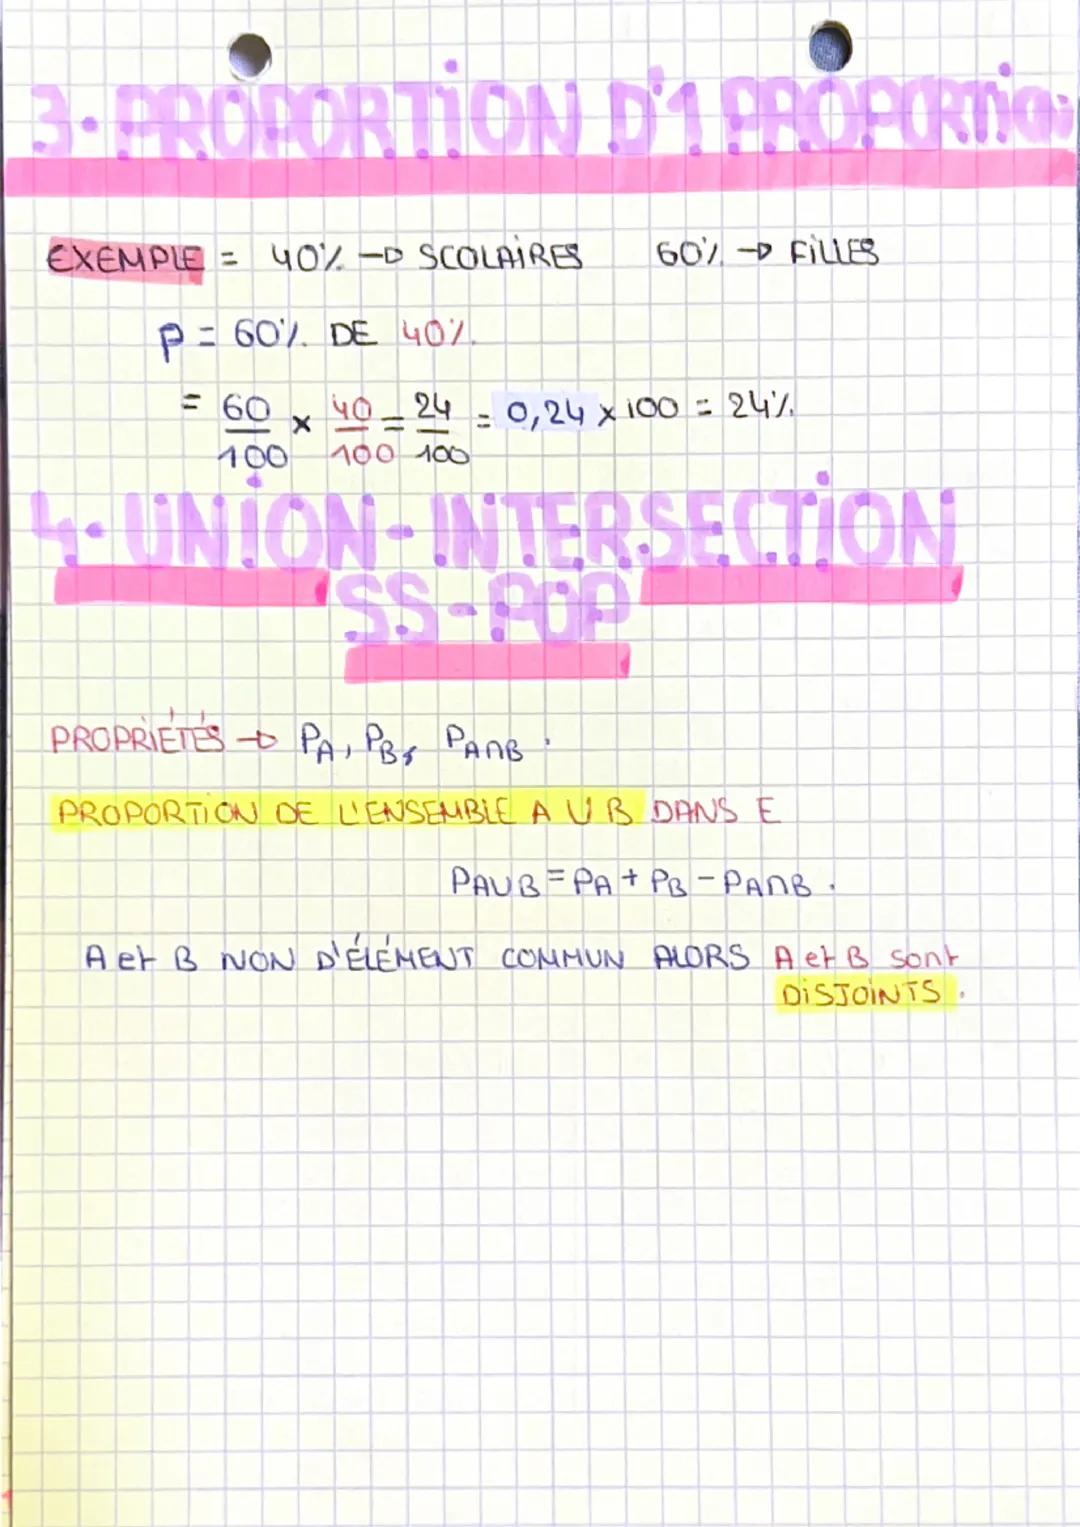 3. PROPORTION D'1 PROPORTION
EXEMPLE = 40% → SCOLAIRES 60% → FILLES
P = 60% DE 40%.
= 60/100 × 40/100 = 24/100 = 0,24 × 100 = 24%.
4. UNION - INTERSECTION
SS-POP
PROPRIÉTÉS → PA, PB, PA∩B.
PROPORTION DE L'ENSEMBLE A U B DANS E
PAUB = PA + PB - PA∩B.
A et B NON D'ÉLÉMENT COMMUN ALORS A et B sont
DISJOINTS.